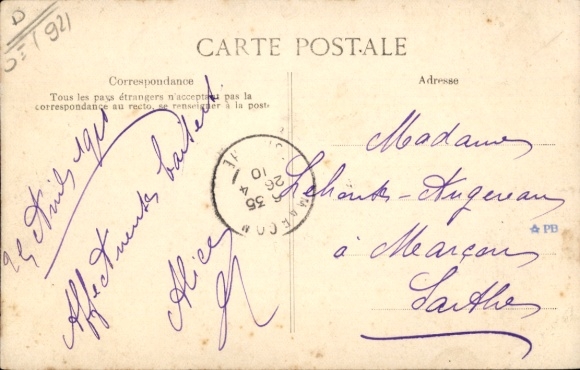 D
CARTE POSTALE
Correspondance
Tous les pays étrangers n'acceptant pas la
correspondance au recto, se renseigner à la poste
Adresse
Avril 1910
Affectueux baisers
Alice
MARCON
6 35
26 4
10
Madame
à Marçon
Sarthe
PB